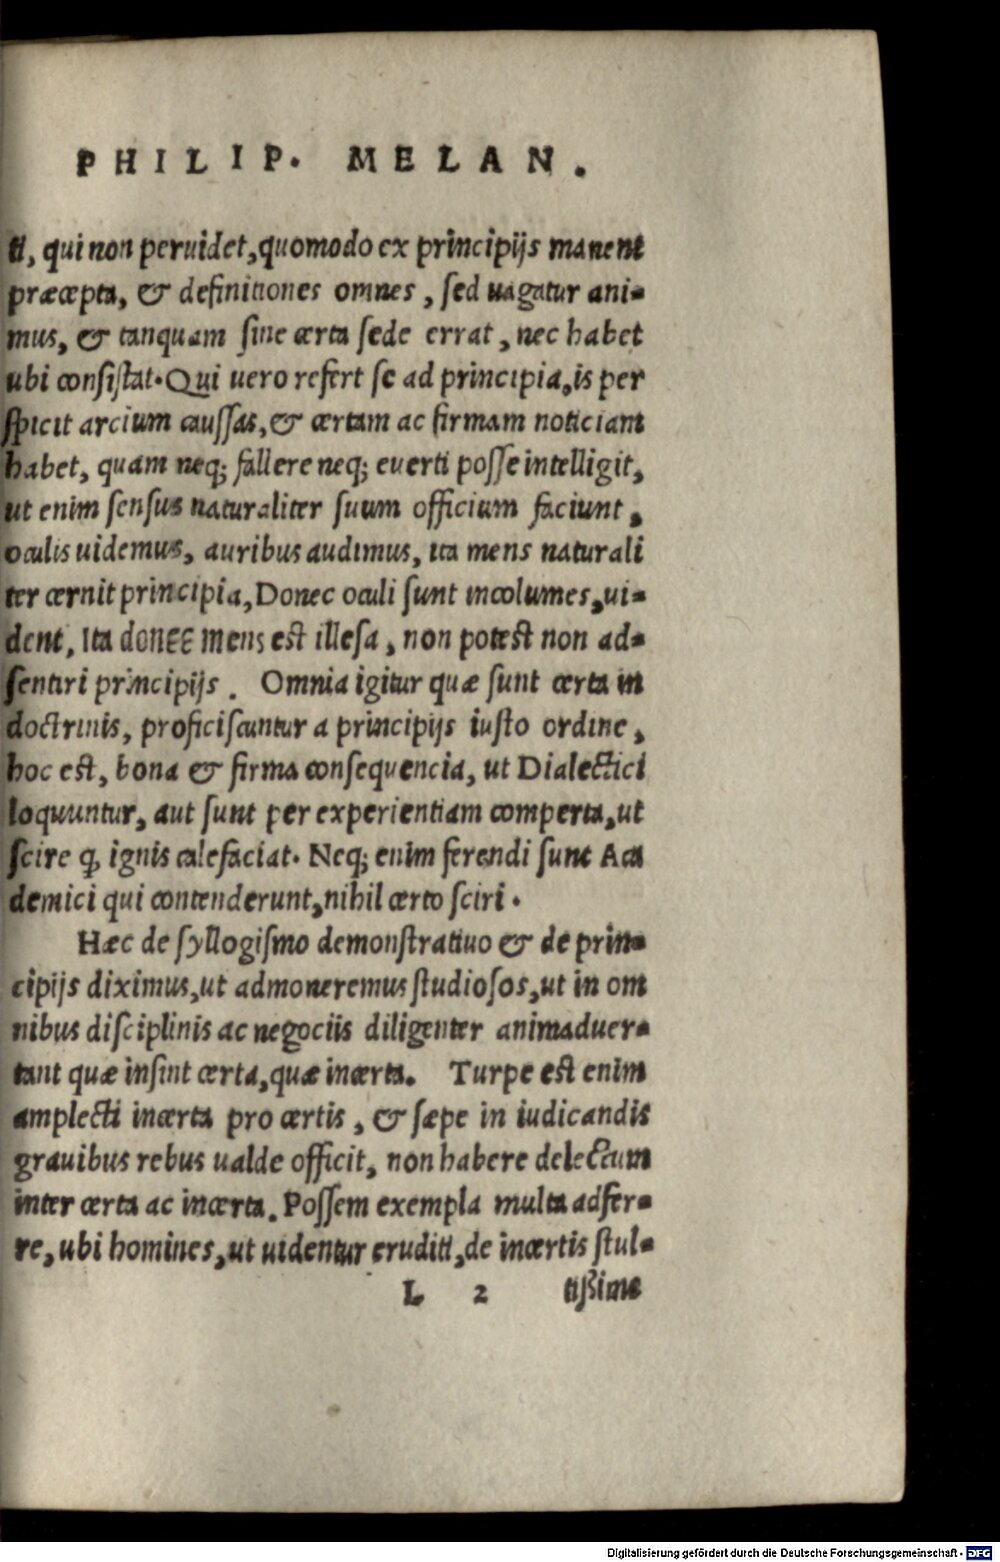 PHILIP. MELAN.
ti, qui non peruidet, quomodo ex principijs manent
præcepta, & definitiones omnes, sed uagatur ani-
mus, & tanquam sine certa sede errat, nec habet
ubi consistat. Qui uero refert se ad principia, is per
spicit arcium caussas, & certam ac firmam noticiam
habet, quam neq; fallere neq; euerti posse intelligit,
ut enim sensus naturaliter suum officium faciunt,
oculis uidemus, auribus audimus, ita mens naturali
ter cernit principia, Donec oculi sunt incolumes, ui-
dent, Ita donec mens est illesa, non potest non ad-
sentiri principijs. Omnia igitur quæ sunt certa in
doctrinis, proficiscuntur a principijs iusto ordine,
hoc est, bona & firma consequencia, ut Dialectici
loquuntur, aut sunt per experientiam comperta, ut
scire ꝙ ignis calefaciat. Neq; enim ferendi sunt Aca
demici qui contenderunt, nihil certo sciri.
Hæc de syllogismo demonstratiuo & de prin-
cipijs diximus, ut admoneremus studiosos, ut in om
nibus disciplinis ac negociis diligenter animaduer-
tant quæ insint certa, quæ incerta. Turpe est enim
amplecti incerta pro certis, & sæpe in iudicandis
grauibus rebus ualde officit, non habere delectum
inter certa ac incerta. Possem exempla multa adfer-
re, ubi homines, ut uidentur eruditi, de incertis stul-
L 2 tißime
Digitalisierung gefördert durch die Deutsche Forschungsgemeinschaft - DFG